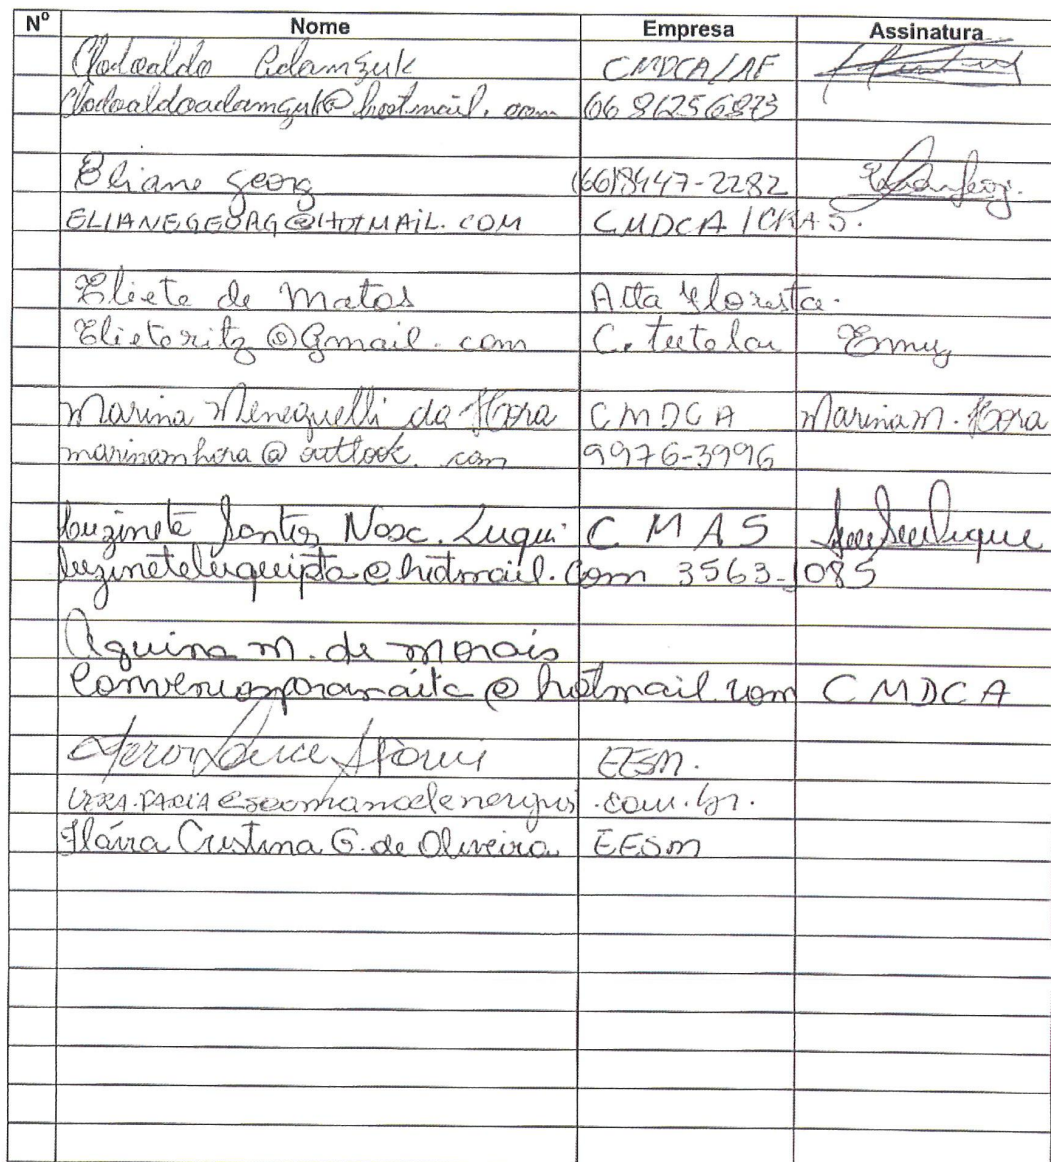 Nº Nome Empresa Assinatura
Clodoaldo Adamzuk CMDCA/AF
Clodoaldoadamzuk@hotmail.com 66 86256873
Eliane Georg (66)8447-2282 Eliane Georg.
ELIANEGGEORG@HOTMAIL.COM CMDCA/CRAS.
Eliete de Matos Alta Floresta.
Elieteritz@Gmail.com C. tutelar
Marina Meneguelli da Hora CMDCA Marina M. Hora
marinamhora@outlook.com 9976-3996
Luzinete Santos Nasc. Luqui CMAS
luzineteluquipta@hotmail.com 3563-1085
Aquina M. de Morais
Conveniosparanaita@hotmail.com CMDCA
EESM.
.com.br.
Flávia Cristina G. de Oliveira EESM